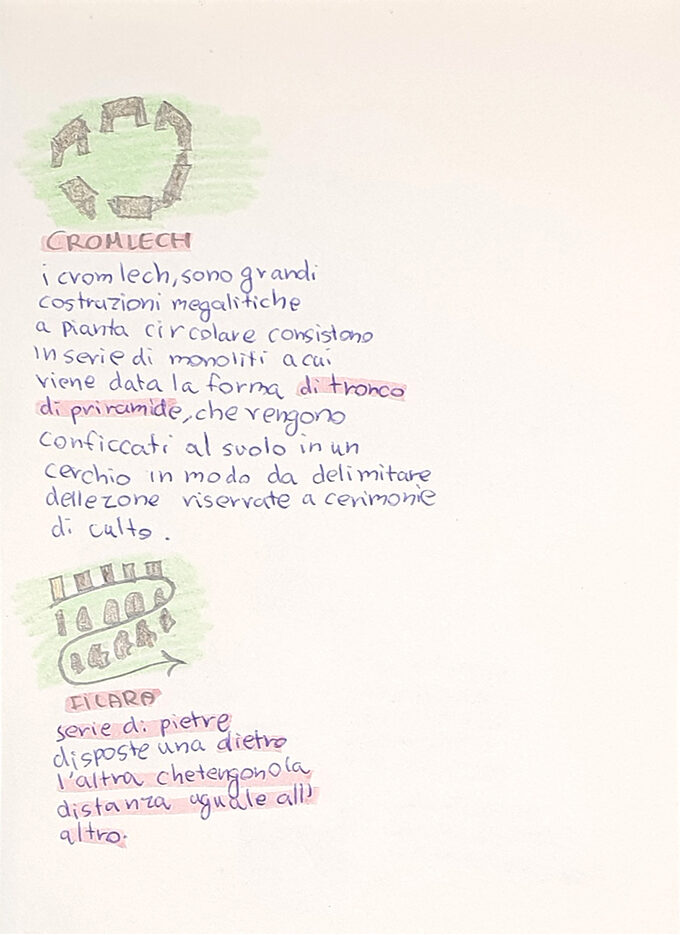 CROMLECH
i cromlech, sono grandi
costruzioni megalitiche
a pianta circolare consistono
in serie di monoliti a cui
viene data la forma di tronco
di priramide, che vengono
conficcati al suolo in un
cerchio in modo da delimitare
delle zone riservate a cerimonie
di culto.
FILARA
serie di pietre
disposte una dietro
l'altra che tengono la
distanza uguale all'
altro.